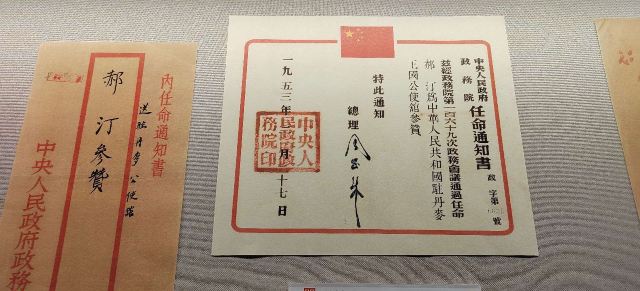 中央人民政府
政務院
任命通知書
政字第 號
茲經政務院第一百六十九次政務會議通過任命
郝汀爲中華人民共和國駐丹麥
王國公使館參贊
特此通知
總理 周恩來
一九五三年 月 十七日
中央人民政府政務院印
內任命通知書
送駐丹麥公使館
郝汀參贊
中央人民政府政務